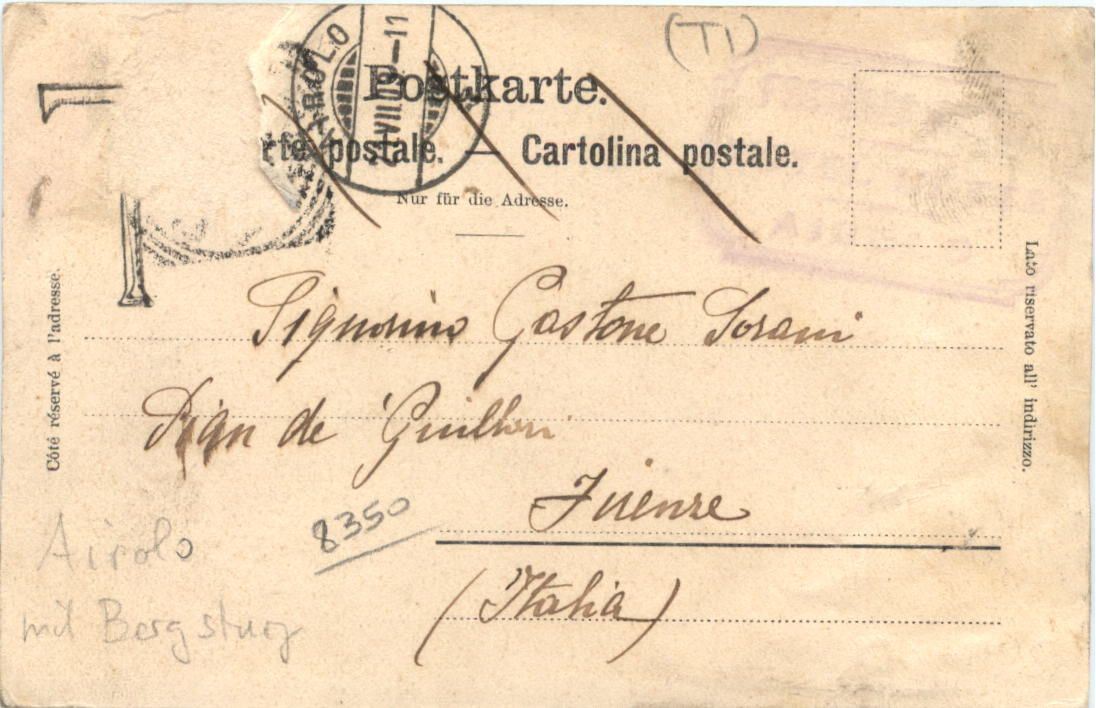 (TI)
AIROLO
VII
11
T
Postkarte.
rte postale. — Cartolina postale.
Nur für die Adresse.
Côté réservé à l'adresse.
Lato riservato all' indirizzo.
Signorino Gastone Sorani
Firenze
(Italia)
8350
Airolo
mit Bergsturz